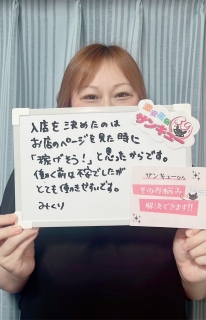 激安商事の
サンキュー
入店を決めたのは
お店のページを見た時に
「稼げそう!」と思ったからです。
働く前は不安でしたが
とても働きやすいです。
みくり
サンキューなら
そのお悩み
解決できます!!